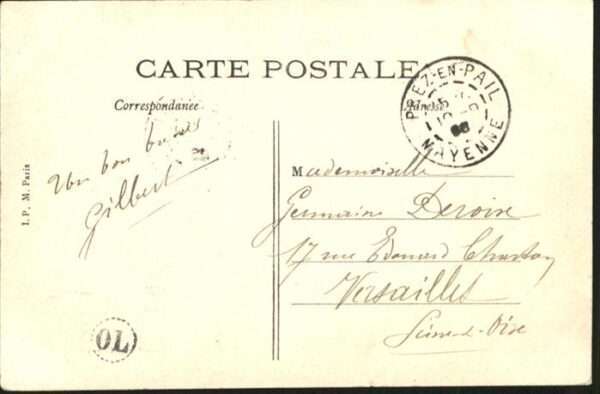 CARTE POSTALE
Correspondance
Adresse
PREZ-EN-PAIL
MAYENNE
Un bon baiser
Gilbert
Mademoiselle
Germaine Deroire
17 rue Edouard Charton
Versailles
Seine-&-Oise
I. P. M. Paris
OL